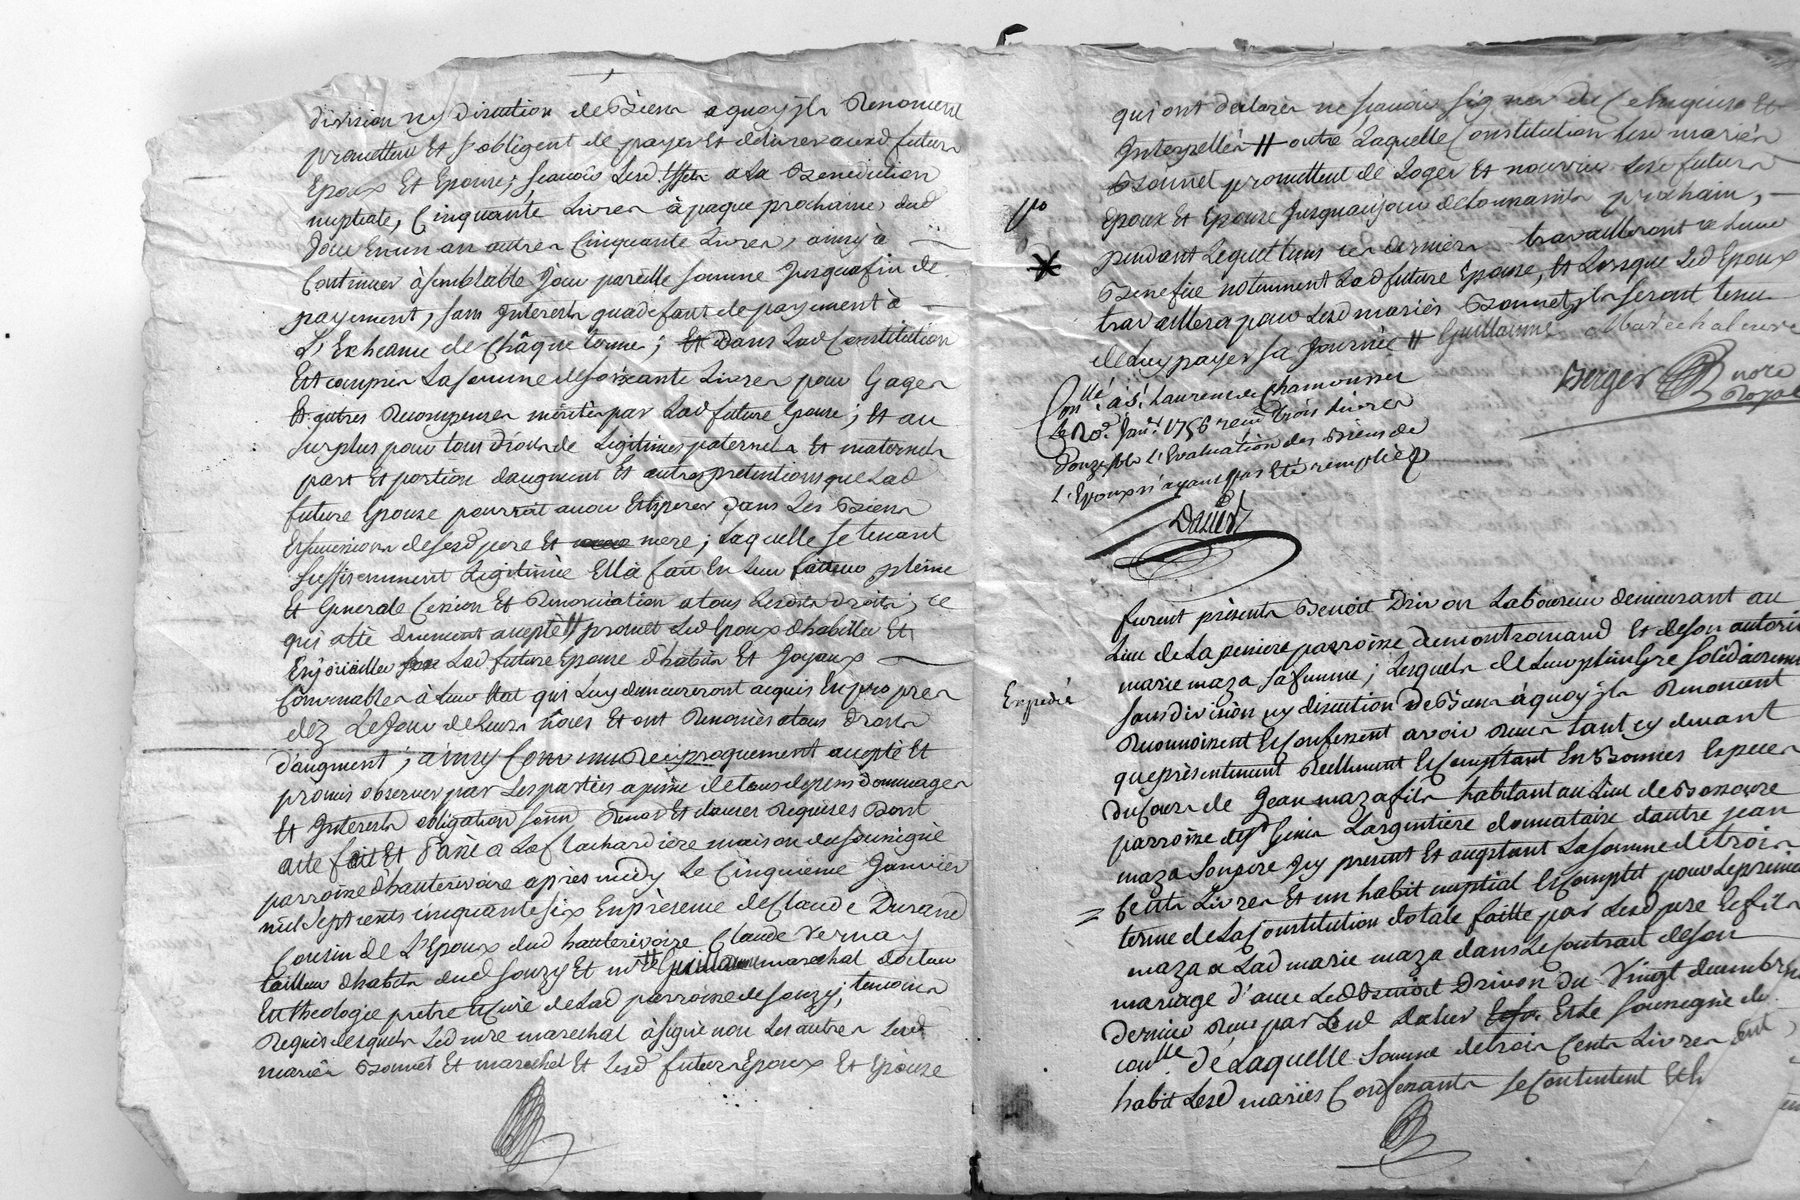 division ny Discution de Biens a quoy ils Renoncent
promettent Et s'obligent de payer Et delivrer ausd futurs
Epoux Et Epouse; scavoir Lesd Effets a La Benediction
nuptiale, Cinquante Livres à paque prochaine, dud
Jour En un an autres Cinquante Livres, ainsy à
Continuer à semblable Jour pareille somme Jusqua fin de
payement, sans Interests qua defaut de payement à
L'Echeance de Châque terme; Et Dans Lad Constitution
Est compris La somme de soixante Livres pour Gages
Et autres Recompenses mérités par Lad future Epouse; Et au
surplus pour tous droits de Legitimes paternels Et maternels
part Et portion daugment Et autres pretentions que Lad
future Epouse pourroit avoir Et Esperer Dans Les Biens
Et successions de sesd pere Et mere; Laquelle se tenant
suffisemment Legitimée Ella fait En Leur faveur pleine
Et Generale Cession Et Renonciation a tous Lesdits droits, ce
qui a été duement accepté // promet Led Epoux d'habiller Et
Enjoüeller Lad future Epouse d'habits Et Joyaux
Convenables à Leur Etat qui Luy demeureront acquis En propres
dez Le Jour de Leurs nôces Et ont Renoncés a tous Droits
d'augment; ainsy Convenu Reciproquement accepté Et
promis observer par Les parties a peine de tous depens dommages
Et Interests obligation soum Renon Et clauses Requises Dont
acte fait Et Passé a La flachardiere maison du soussigné
parroisse d'hauterivoire apres midy Le Cinquieme Janvier
mil sept cents cinquante six En présence de Claude Durand
Cousin de L'Epoux dud hauterivoire Claude Vernay
tailleur d'habits dud souzy Et mre marechal docteur
En theologie pretre Et Curé de Lad parroisse de souzy; temoins
Requis desquels Led mre marechal à signé non Les autres Lesd
mariés Bonnet Et marechal Et Lesd futurs Epoux Et Epouse
qui ont declarés ne scavoir signer de Ce Enquis Et
Interpellés // outre Laquelle Constitution Lesd mariés
Bonnet promettent de Loger Et nourrir Lesd futurs
Epoux Et Epouse Jusqu'au jour de toussaints prochain,
pendant Lequel tems ces derniers travailleront a Leur
Benefice notamment Lad future Epouse, Et Lorsque Led Epoux
travaillera pour Lesd mariés Bonnet ils seront tenus
de Luy payer sa Journée // Guillaume Marechal curé
Berger nore
Royal
Conllé. à St Laurent de Chamousset
Le 20e. Janr. 1756 recu trois Livres
douze sols L'Evaluation des Biens de
L'Epoux n'ayant pas Eté remplie
David
furent présents Benoit Drivon Laboureur demeurant au
Lieu de La peniere parroisse de montromand Et de son autorité
marie maza sa femme; Lesquels de Leur plein Gre solidairement
Expedié
sans division ny discution de Biens à quoy ils Renoncent
Reconnoissent Et Confessent avoir Recu tant cy devant
que présentement Reellement Et Comptant En Bonnes Especes
du Cours de Jean maza fils habitant au Lieu de
parroisse de st Genis Largentiere donnataire d'autre jean
maza son pere Icy present Et acceptant La somme de trois
Cents Livres Et un habit nuptial Et Comptés pour Le premier
terme de La Constitution dotale faitte par Lesd pere Et fils
maza a Lad marie maza dans Le Contrat de son
mariage d'avec Led Benoit Drivon du Vingt decembre
dernier Recu par Led Et Le soussigné du
conllé de Laquelle somme de trois Cents Livres
habit Lesd mariés Confessants se Contentent Et